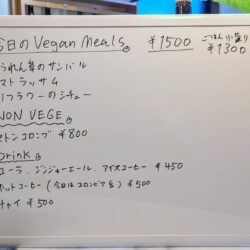 今日のVegan Meals ¥1500 ごはん小盛り ¥1300
うれん草のサンバル
マトラッサム
リフラワーのシチュー
NON VEGE
マトンコロンブ ¥800
Drink
コーラ、ジンジャーエール、アイスコーヒー ¥450
ホットコーヒー (今日はコロンビア豆) ¥500
チャイ ¥500